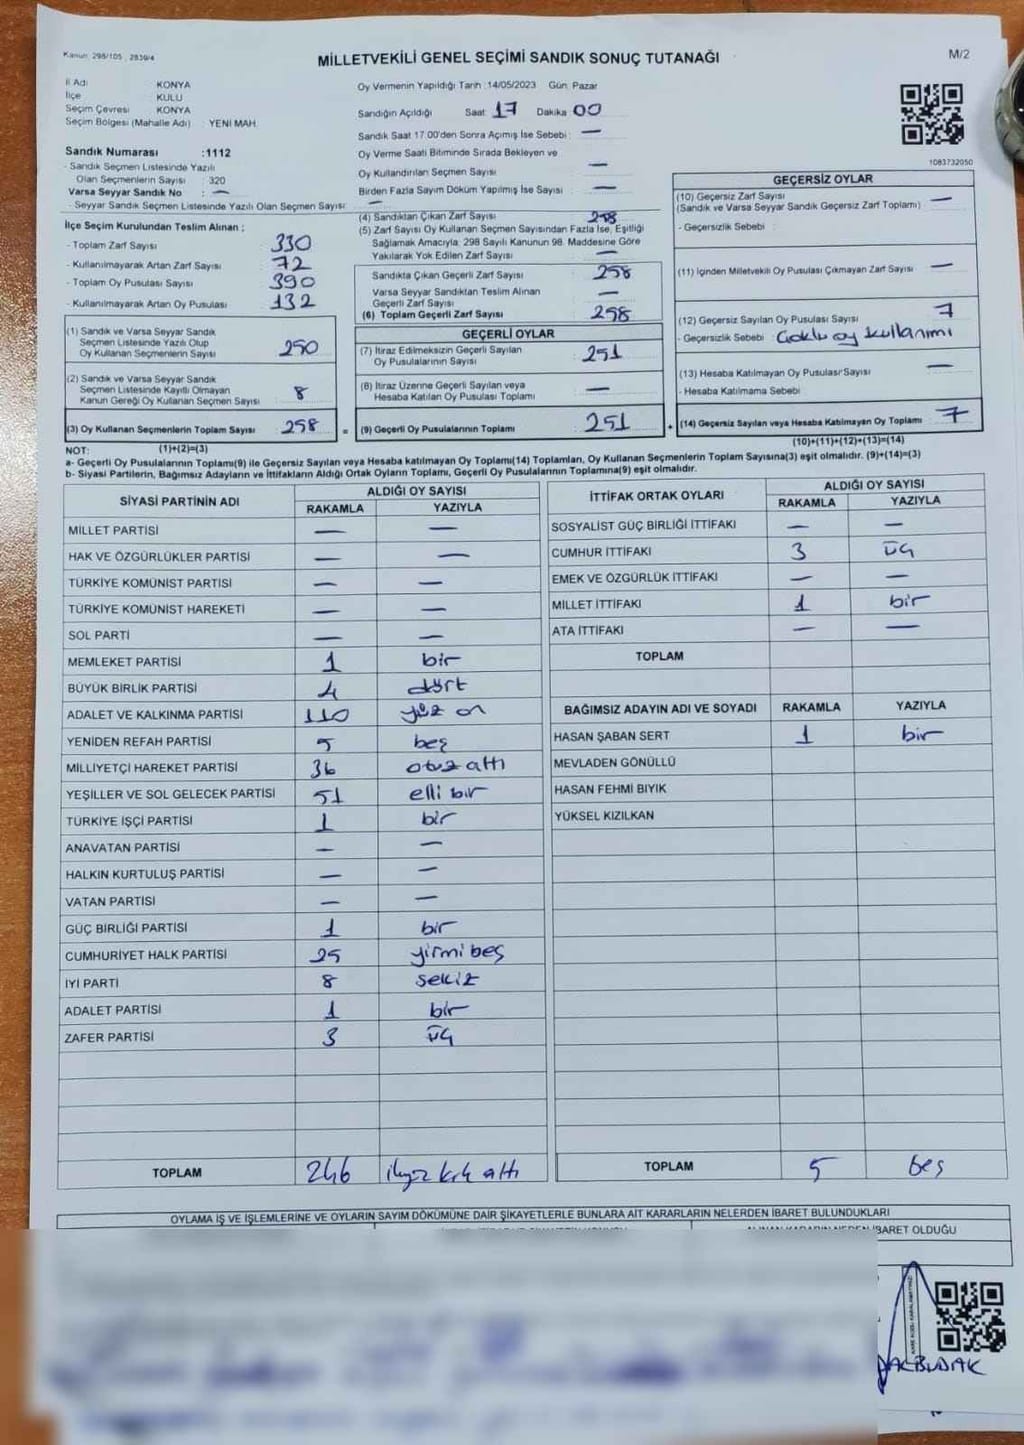 Kanun: 298/105 , 2839/4
MİLLETVEKİLİ GENEL SEÇİMİ SANDIK SONUÇ TUTANAĞI
M/2
İl Adı KONYA
İlçe KULU
Seçim Çevresi KONYA
Seçim Bölgesi (Mahalle Adı) : YENİ MAH.
Sandık Numarası :1112
- Sandık Seçmen Listesinde Yazılı
Olan Seçmenlerin Sayısı : 320
Varsa Seyyar Sandık No : —
- Seyyar Sandık Seçmen Listesinde Yazılı Olan Seçmen Sayısı: —
Oy Vermenin Yapıldığı Tarih :14/05/2023 Gün: Pazar
Sandığın Açıldığı Saat 17 Dakika 00
Sandık Saat 17.00'den Sonra Açımış İse Sebebi : —
Oy Verme Saati Bitiminde Sırada Bekleyen ve
Oy Kullandırılan Seçmen Sayısı —
Birden Fazla Sayım Döküm Yapılmış İse Sayısı —
1083732050
İlçe Seçim Kurulundan Teslim Alınan ;
- Toplam Zarf Sayısı 330
- Kullanılmayarak Artan Zarf Sayısı 72
- Toplam Oy Pusulası Sayısı 390
- Kullanılmayarak Artan Oy Pusulası 132
(1) Sandık ve Varsa Seyyar Sandık
Seçmen Listesinde Yazılı Olup
Oy Kullanan Seçmenlerin Sayısı 250
(2) Sandık ve Varsa Seyyar Sandık
Seçmen Listesinde Kayıtlı Olmayan
Kanun Gereği Oy Kullanan Seçmen Sayısı 8
(3) Oy Kullanan Seçmenlerin Toplam Sayısı 258 =
(4) Sandıktan Çıkan Zarf Sayısı 258
(5) Zarf Sayısı Oy Kullanan Seçmen Sayısından Fazla İse, Eşitliği
Sağlamak Amacıyla, 298 Sayılı Kanunun 98. Maddesine Göre
Yakılarak Yok Edilen Zarf Sayısı —
Sandıkta Çıkan Geçerli Zarf Sayısı 258
Varsa Seyyar Sandıktan Teslim Alınan
Geçerli Zarf Sayısı —
(6) Toplam Geçerli Zarf Sayısı 258
GEÇERLİ OYLAR
(7) İtiraz Edilmeksizin Geçerli Sayılan
Oy Pusulalarının Sayısı 251
(8) İtiraz Üzerine Geçerli Sayılan veya
Hesaba Katılan Oy Pusulası Toplamı —
(9) Geçerli Oy Pusulalarının Toplamı 251 +
GEÇERSİZ OYLAR
(10) Geçersiz Zarf Sayısı
(Sandık ve Varsa Seyyar Sandık Geçersiz Zarf Toplamı) —
- Geçersizlik Sebebi :
(11) İçinden Milletvekili Oy Pusulası Çıkmayan Zarf Sayısı —
(12) Geçersiz Sayılan Oy Pusulası Sayısı 7
- Geçersizlik Sebebi : Çoklu oy kullanımı
(13) Hesaba Katılmayan Oy Pusulası Sayısı —
- Hesaba Katılmama Sebebi
(14) Geçersiz Sayılan veya Hesaba Katılmayan Oy Toplamı 7
NOT: (1)+(2)=(3)
(10)+(11)+(12)+(13)=(14)
a- Geçerli Oy Pusulalarının Toplamı(9) ile Geçersiz Sayılan veya Hesaba katılmayan Oy Toplamı(14) Toplamları, Oy Kullanan Seçmenlerin Toplam Sayısına(3) eşit olmalıdır. (9)+(14)=(3)
b- Siyasi Partilerin, Bağımsız Adayların ve İttifakların Aldığı Ortak Oyların Toplamı, Geçerli Oy Pusulalarının Toplamına(9) eşit olmalıdır.
SİYASİ PARTİNİN ADI ALDIĞI OY SAYISI
RAKAMLA YAZIYLA
MİLLET PARTİSİ — —
HAK VE ÖZGÜRLÜKLER PARTİSİ — —
TÜRKİYE KOMÜNİST PARTİSİ — —
TÜRKİYE KOMÜNİST HAREKETİ — —
SOL PARTİ — —
MEMLEKET PARTİSİ 1 bir
BÜYÜK BİRLİK PARTİSİ 4 dört
ADALET VE KALKINMA PARTİSİ 110 yüz on
YENİDEN REFAH PARTİSİ 5 beş
MİLLİYETÇİ HAREKET PARTİSİ 36 otuz altı
YEŞİLLER VE SOL GELECEK PARTİSİ 51 elli bir
TÜRKİYE İŞÇİ PARTİSİ 1 bir
ANAVATAN PARTİSİ — —
HALKIN KURTULUŞ PARTİSİ — —
VATAN PARTİSİ — —
GÜÇ BİRLİĞİ PARTİSİ 1 bir
CUMHURİYET HALK PARTİSİ 25 yirmi beş
İYİ PARTİ 8 sekiz
ADALET PARTİSİ 1 bir
ZAFER PARTİSİ 3 üç
TOPLAM 246 ikiyüz kırk altı
İTTİFAK ORTAK OYLARI ALDIĞI OY SAYISI
RAKAMLA YAZIYLA
SOSYALİST GÜÇ BİRLİĞİ İTTİFAKI — —
CUMHUR İTTİFAKI 3 üç
EMEK VE ÖZGÜRLÜK İTTİFAKI — —
MİLLET İTTİFAKI 1 bir
ATA İTTİFAKI — —
TOPLAM
BAĞIMSIZ ADAYIN ADI VE SOYADI RAKAMLA YAZIYLA
HASAN ŞABAN SERT 1 bir
MEVLADEN GÖNÜLLÜ
HASAN FEHMİ BIYIK
YÜKSEL KIZILKAN
TOPLAM 5 beş
OYLAMA İŞ VE İŞLEMLERİNE VE OYLARIN SAYIM DÖKÜMÜNE DAİR ŞİKAYETLERLE BUNLARA AİT KARARLARIN NELERDEN İBARET BULUNDUKLARI
ALINAN KARARIN NEDEN İBARET OLDUĞU